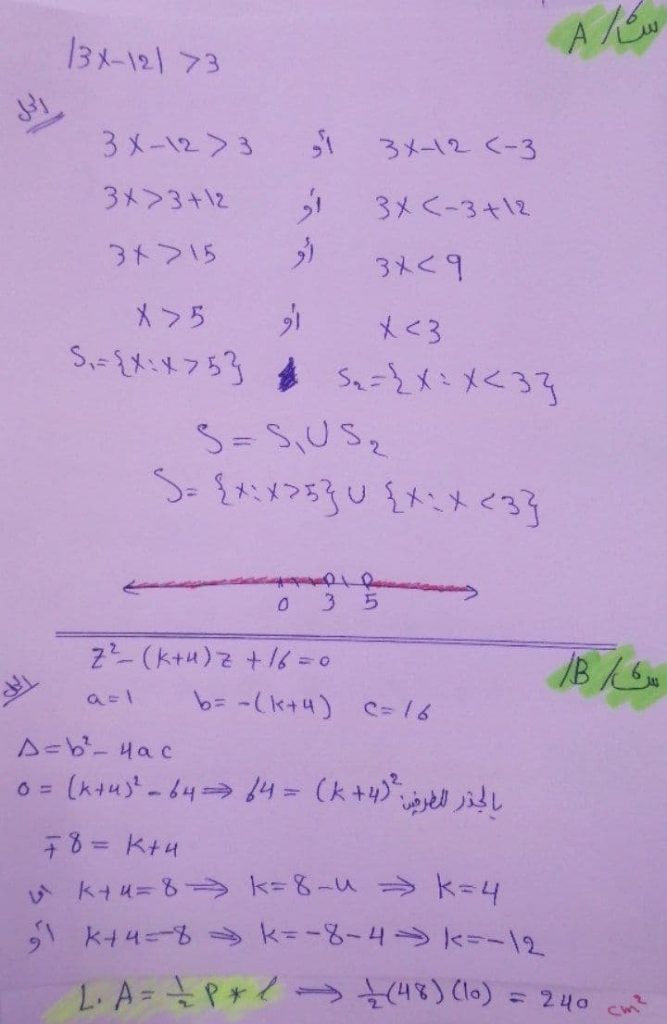 س٦/ A
|3x-12| >3
الحل
3x-12>3 أو 3x-12<-3
3x>3+12 أو 3x<-3+12
3x>15 أو 3x<9
x>5 أو x<3
S₁={x:x>5} S₂={x:x<3}
S=S₁∪S₂
S={x:x>5}∪{x:x<3}
0 3 5
س٦/ B/
z²-(k+4)z+16=0
الحل
a=1 b=-(k+4) c=16
Δ=b²-4ac
0=(k+4)²-64⇒64=(k+4)² بالجذر للطرفين
∓8=k+4
k+4=8⇒k=8-4⇒k=4
أو k+4=-8⇒k=-8-4⇒k=-12
L.A=½P*l⇒½(48)(10)=240 cm²